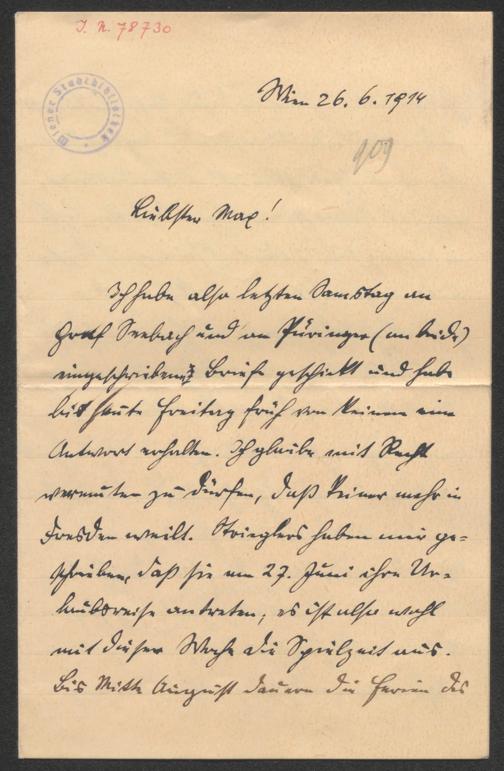 J. N. 78730
Wiener Stadtbibliothek
Wien 26. 6. 1914
909
Liebster Max!
Ich habe also letzten Samstag an
Graf Seebach und an Püringer (an beide)
eingeschrieben Briefe geschickt und habe
bis heute Freitag früh von keinem eine
Antwort erhalten. Ich glaube mit Recht
vermuten zu dürfen, daß keiner mehr in
Dresden weilt. Strieglers haben mir ge-
schrieben, daß sie am 27. Juni ihre Ur-
laubsreise antreten; es ist also wohl
mit dieser Woche die Spielzeit aus.
Bis Mitte August dauern die Ferien des